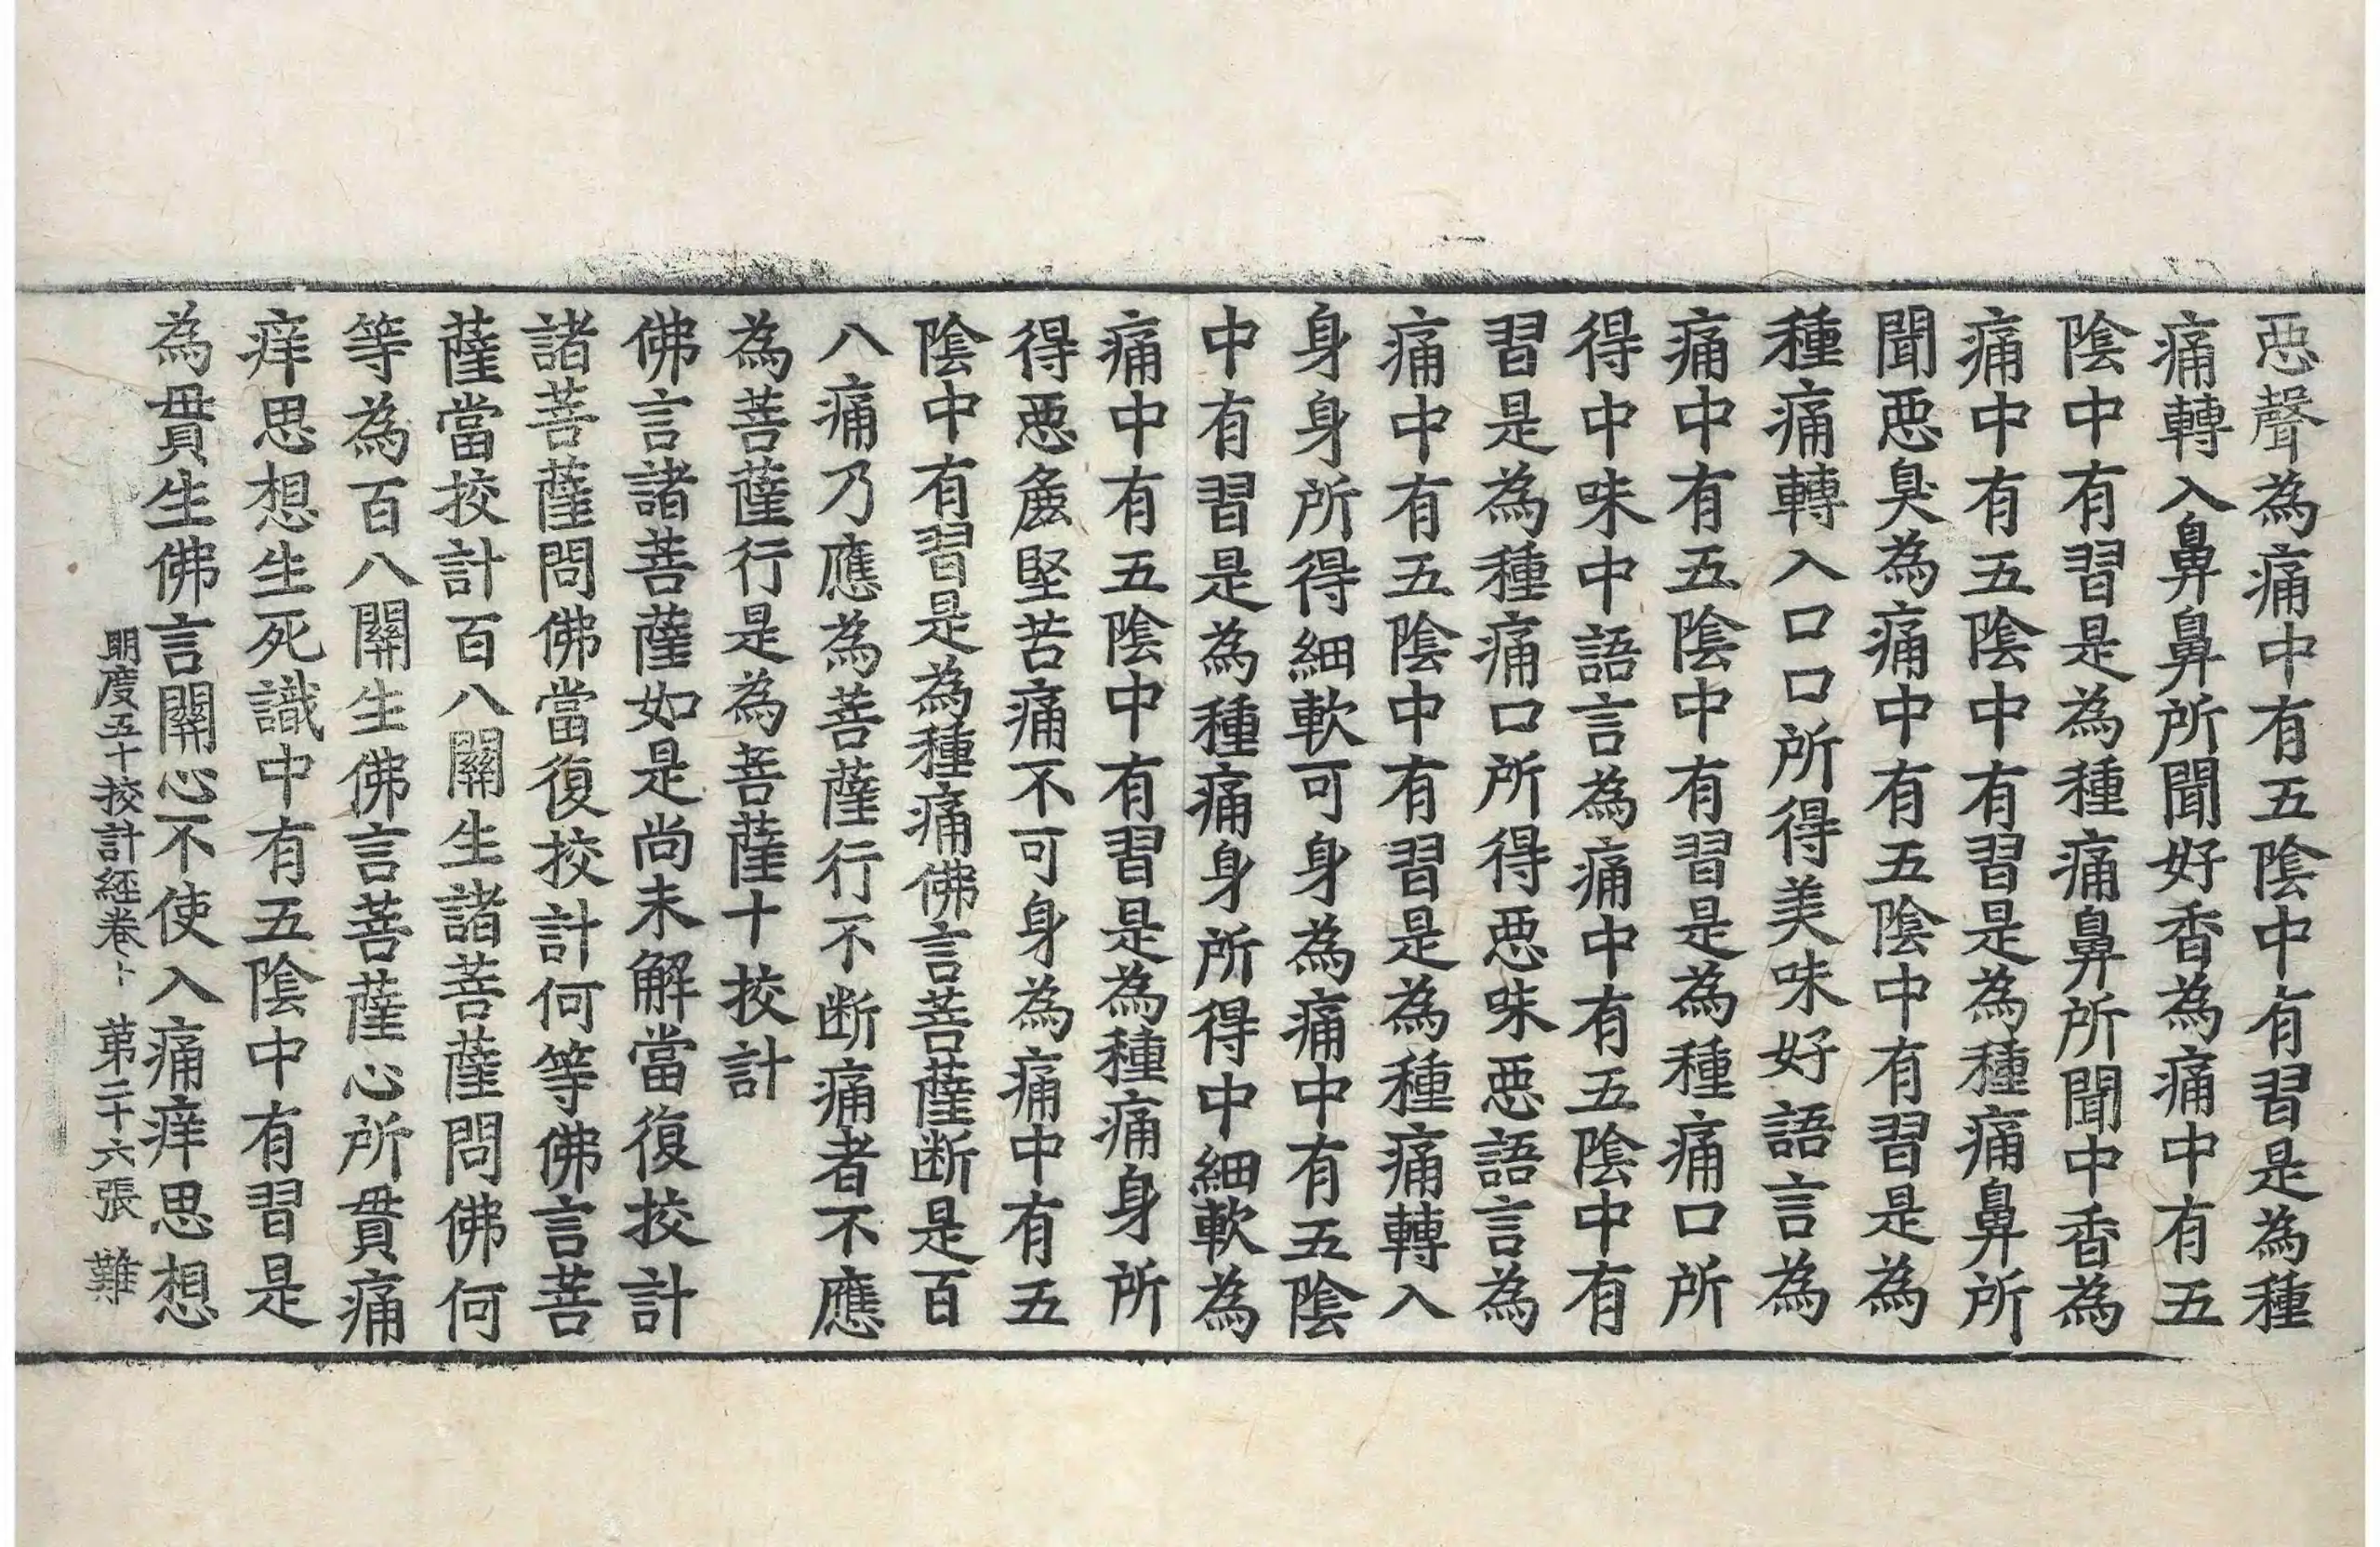 惡聲為痛中有五陰中有習是為種
痛轉入鼻鼻所聞好香為痛中有五
陰中有習是為種痛鼻所聞中香為
痛中有五陰中有習是為種痛鼻所
聞惡臭為痛中有五陰中有習是為
種痛轉入口口所得美味好語言為
痛中有五陰中有習是為種痛口所
得中味中語言為痛中有五陰中有
習是為種痛口所得惡味惡語言為
痛中有五陰中有習是為種痛轉入
身身所得細軟可身為痛中有五陰
中有習是為種痛身所得中細軟為
痛中有五陰中有習是為種痛身所
得惡麁堅苦痛不可身為痛中有五
陰中有習是為種痛佛言菩薩断是百
八痛乃應為菩薩行不断痛者不應
為菩薩行是為菩薩十挍計
佛言諸菩薩如是尚未解當復挍計
諸菩薩問佛當復挍計何等佛言菩
薩當挍計百八關生諸菩薩問佛何
等為百八關生佛言菩薩心所貫痛
痒思想生死識中有五陰中有習是
為貫生佛言關心不使入痛痒思想
明度五十挍計經卷上 第二十六張 難